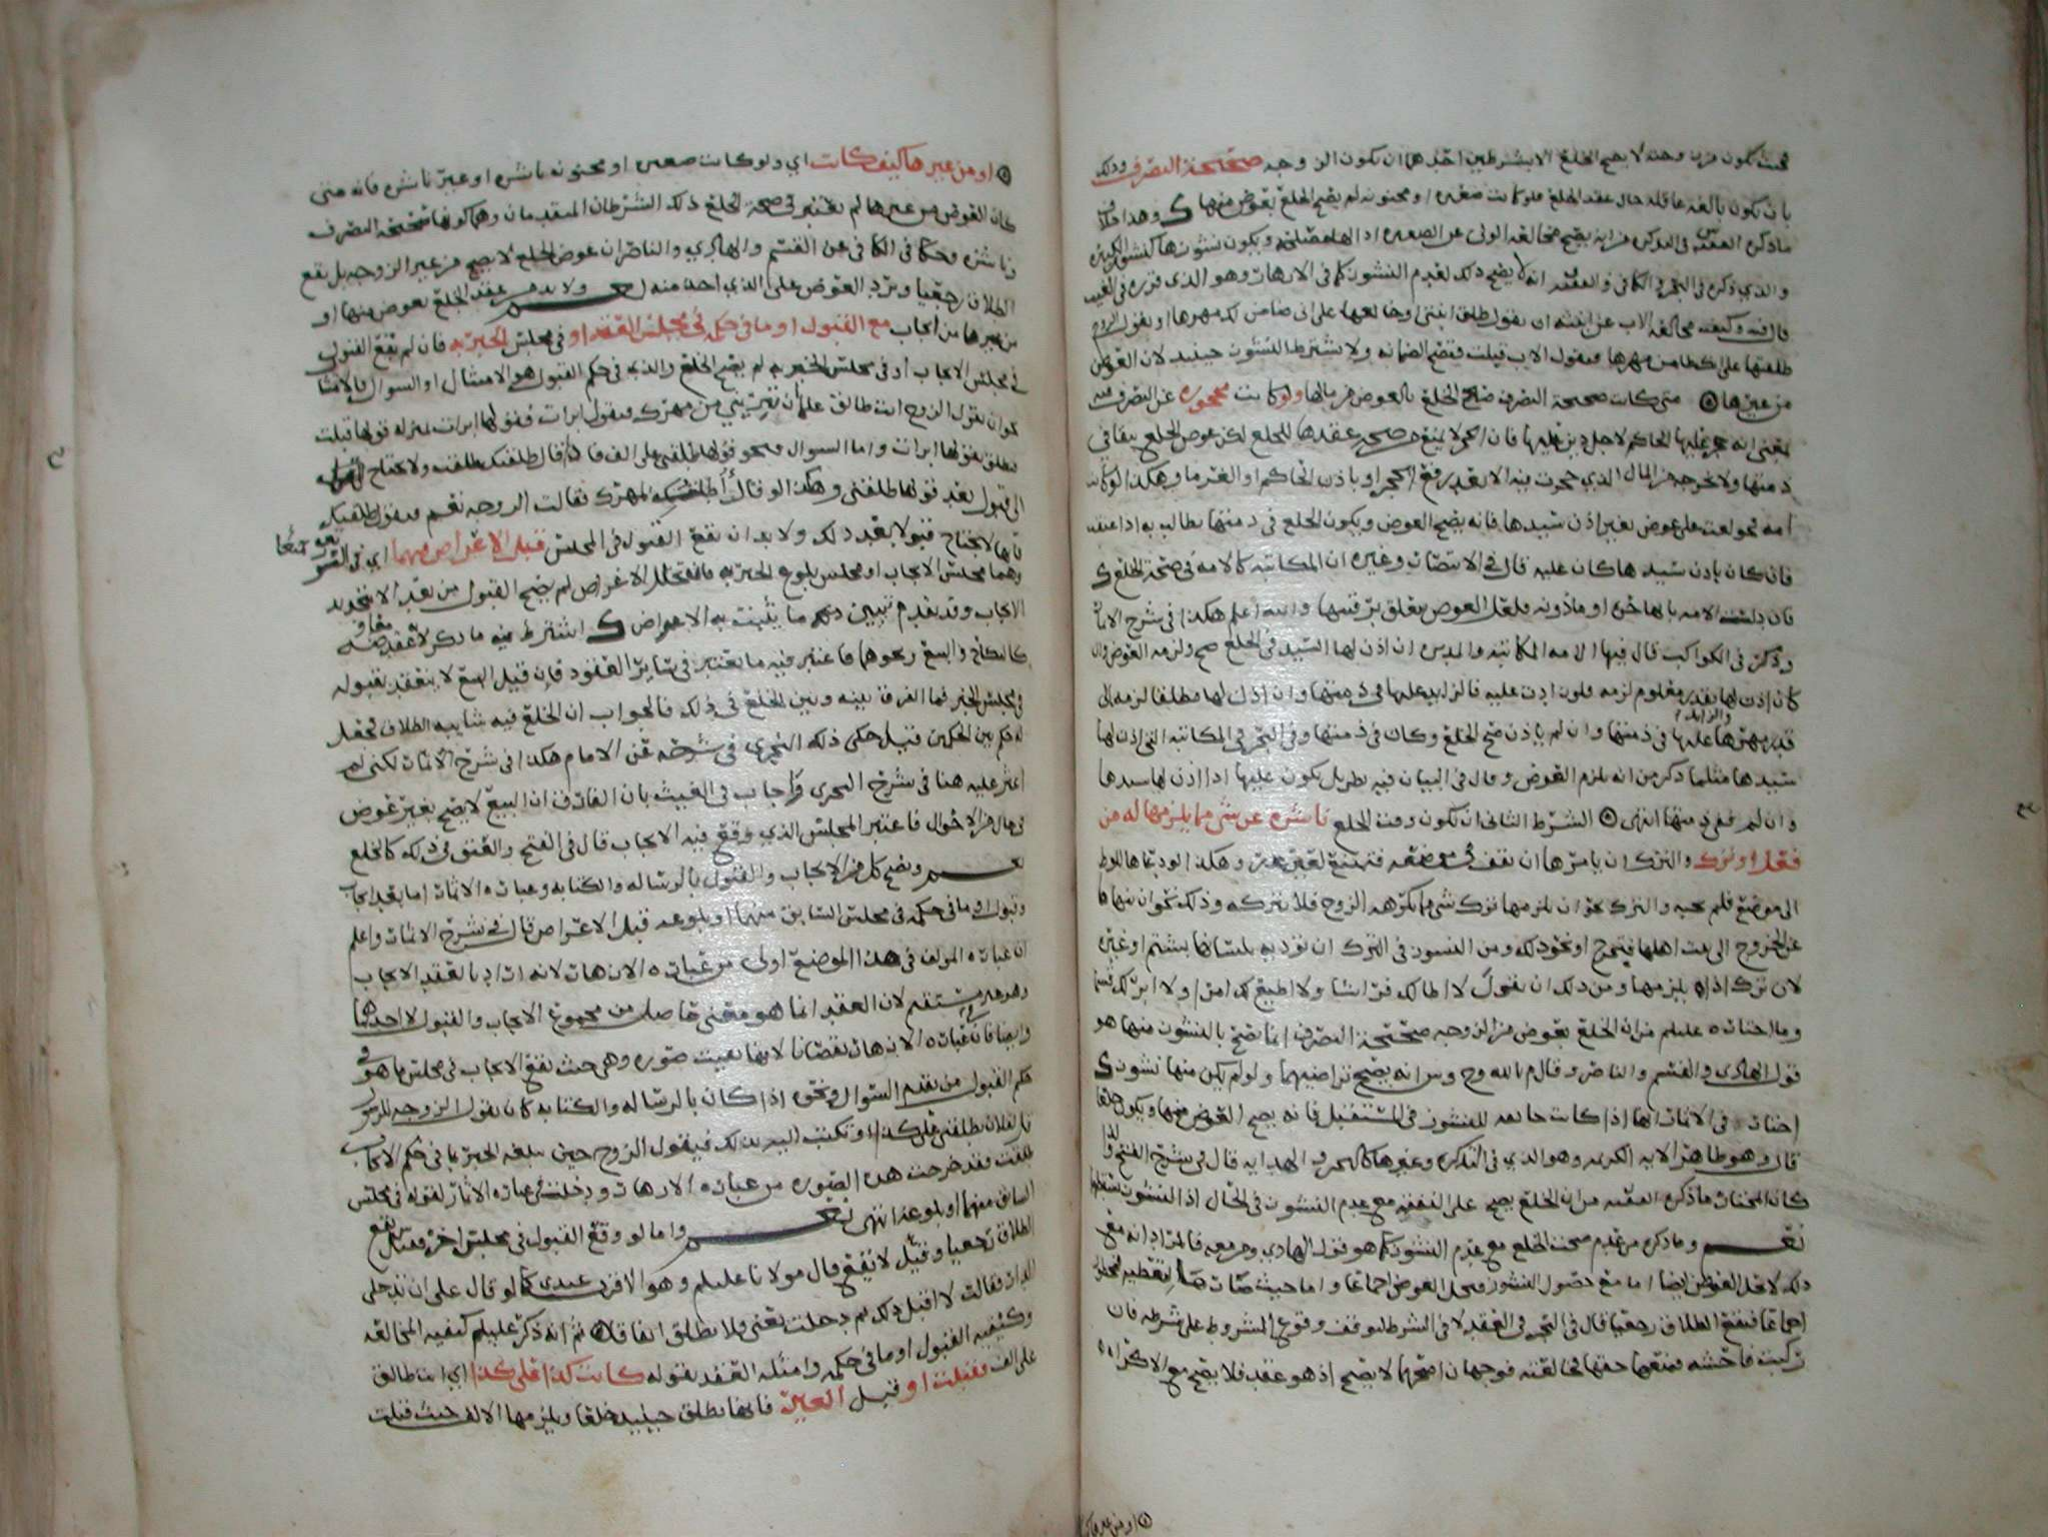 بحيث يكون من الزوجة لا يصح الخلع الا بشرطين احدهما ان يكون الزوجة صحيحة التصرف وذلك
بان تكون بالغة عاقلة حال عقد الخلع فلو كانت صغيرة او مجنونة لم يصح الخلع بعوض منهما وهذا
ما ذكره الفقيه س في التذكرة انه يصح مخالعة الولي عن الصغيرة اذا لها مصلحة ويكون نشوزها كنشوز الكبيرة
والذي ذكره في البحر في الكافي والفقيه انه لا يصح ذلك لعدم النشوز كما في الازهار وهو الذي قرره في الغيث
قال فيه وكيفية مخالعة الاب عن ابنته ان يقول طلق ابنتي او خالعها على اني ضامن لك مهرها او يقول الزوج
طلقتها على كذا من مهرها فيقول الاب قبلت فتصح الضمانة ولا يشترط النشوز حينئذ لان العوض
من غيرها متى كانت صحيحة التصرف صح الخلع بالعوض من مالها ولو كانت محجورة عن التصرف فيه
بمعنى انه حجر عليها الحاكم لاجل دين عليها فان الحجر لا يمنع من صحة عقدها للخلع لكن عوض الخلع يبقا في
ذمتها ولا تخرجه من المال الذي حجرت فيه الا بعد رفع الحجر او باذن الحاكم او الغرما وهكذا لو كانت
امة خولعت على عوض بغير اذن سيدها فانه يصح العوض ويكون الخلع في ذمتها تطالب به اذا عتقت
فان كان باذن سيدها كان عليه قال في الانتصار وغيره ان المكاتبة كالامة في صحة الخلع
فان دلست الامة بانها حرة او ماذونة فلعل العوض يتعلق برقبتها والله اعلم هكذا في شرح الاثمار
وذكر في الكواكب قال فيها الامة المكاتبة والمدبرة ان اذن لها السيد في الخلع صح ولزمه العوض وان
كان اذن لها بقدر معلوم لزمه فلو زادت عليه فالزايد عليها في ذمتها وان اذن لها مطلقا لزمه الى
قدر مهرها والزايد عليها في ذمتها وان لم ياذن صح الخلع وكان في ذمتها وفي البحر في المكاتبة التي اذن لها
سيدها مثلما ذكر من انه يلزم العوض وقال في البيان فيه نظر بل يكون عليها اذا اذن لها سيدها
وان لم ففي ذمتها انتهى الشرط الثاني ان تكون وقت الخلع ناشزة عن شي مما يلزمها له من
فعل او ترك والترك ان يامرها ان تقف في موضعه فتمتنع لغير عذر وهكذا لو دعاها للوطء
الى موضع فلم تجبه والترك نحو ان يلزمها ترك شي مما يكرهه الزوج فلا تتركه وذلك نحو ان ينهاها
عن الخروج الى بيت اهلها فتخرج او نحو ذلك ومن النشوز في الترك ان تؤذيه بلسانها بشتم او غيره
لان ترك اذاه يلزمها ومن ذلك ان تقول لا اطا لك فراشا ولا اطيع لك امرا ولا ابر لك قسما
وما اختاره عليلم من ان الخلع بعوض من الزوجة صحيحة التصرف انما يصح بالنشوز منها هو
قول الهادي والقسم والناصر وقال م بالله وح وس انه يصح بتراضيهما ولو لم يكن منها نشوز
اختار في الاثمار انها اذا كانت خايفة للنشوز في المستقبل فانه يصح العوض منها ويكون خلعا
قال وهو ظاهر الاية الكريمة وهو الذي في التذكرة وغيرها كالبحر والهداية قال في شرح الفتح ولذا
كان المختار ما ذكره الفقيه من ان الخلع يصح على النفقة مع عدم النشوز في الحال اذ النشوز يسقطها
نعم وما ذكره من عدم صحة الخلع مع عدم النشوز كما هو قول الهادي ومن معه فالمراد انه مع
ذلك لا يحل العوض ايضا اما مع حصول النشوز فيحل العوض اجماعا واما حيث
اجماعا فيقع الطلاق رجعيا قال في البحر في العقد لا في الشرط لتوقف وقوع المشروط على شرطه فان
ارتكبت فاحشة فمنعها حقها فخالعته فوجهان اصحهما لا يصح اذ هو عقد فلا يصح مع الاكراه
او من غيرها كيف
او من غيرها كيف كانت اي ولو كانت صغيرة او مجنونة ناشزة او غير ناشزة فانه متى
كان العوض من غيرها لم يعتبر في صحة الخلع ذلك الشرطان المتقدمان وهما كونها صحيحة التصرف
وناشزة وحكا في الكافي عن القسم والهادي والناصر ان عوض الخلع لا يصح من غير الزوجة بل يقع
الطلاق رجعيا ويرد العوض على الذي اخذ منه نعم ولا بد من عقد الخلع بعوض منها او
من غيرها من ايجاب مع القبول او ما في حكمه في مجلس العقد او في مجلس الخبر به فان لم يقع القبول
في مجلس الايجاب او في مجلس الخبر به لم يصح الخلع والذي في حكم القبول هو الامتثال او السوال فالامتثا
نحو ان يقول الزوج انت طالق على ان تبريني من مهرك فيقول ابرات فقولها ابرات بمنزلة قولها قبلت
فتطلق بقولها ابرات واما السوال فنحو قولها طلقني على الف فاذا قال طلقتك طلقت ولا يحتاج
الى قبول بعد قولها طلقني وهكذا لو قال أأطلقك لمهرك فقالت الزوجة نعم فيقول طلقتك
فانها لا يحتاج قبولا بعد ذلك ولا بد ان يقع القبول في المجلس قبل الاعراض فيهما اي في
وهما مجلس الايجاب او مجلس بلوغ الخبر به فان تخلل الاعراض لم يصح القبول من بعد الا بتجديد
الايجاب وقد تقدم تبيين ما يثبت به الاعراض اشترط فيه ما ذكر لانه عقد معاوضة
كالنكاح والبيع ونحوهما فاعتبر فيه ما يعتبر في ساير العقود فان قيل البيع لا ينعقد بقبوله
في مجلس الخبر فما الفرق بينه وبين الخلع في ذلك فالجواب ان الخلع فيه شايبة الطلاق فجعل
له حكم بين الحكمين قيل حكى ذلك النجري في شرحه عن الامام هكذا في شرح الاثمار لكني لم
اعثر عليه هنا في شرح النجري واجاب في الغيث بان الفارق ان البيع لا يصح بغير عوض
في حال من الاحوال فاعتبر المجلس الذي وقع فيه الايجاب قال في الفتح والعتق في ذلك كالخلع
نعم ويصح كل من الايجاب والقبول بالرسالة والكتابة وعبارة الاثمار اما بعد ايجاب
وقبول او ما في حكمه في مجلس السابق منهما او بلوغه قبل الاعراض قال في شرح الاثمار واعلم
ان عبارة المولف في هذا الموضع اولى من عبارة الازهار لانه اراد بالعقد الايجاب
وهو غير مستقيم لان العقد انما هو معنى حاصل من مجموع الايجاب والقبول لا احدهما
وايضا فان عبارة الازهار نقصانا لانها بقيت صورة وهي حيث يقع الايجاب في مجلس ما هو في
حكم القبول من تقدم السوال ونحوه اذا كان بالرسالة والكتابة كان يقول الزوجة للرسول
قل لفلان يطلقني على كذا او تكتب اليه بذلك فيقول الزوج حين يبلغه الخبر بما في حكم الايجاب
طلقت فقد خرجت هذه الصورة من عبارة الازهار ودخلت في عبارة الاثمار لقوله في مجلس
السابق منهما او بلوغه انتهى نعم واما لو وقع القبول في مجلس اخر فقيل يقع
الطلاق رجعيا وقيل لا يقع قال مولانا عليلم وهو الاقرب عندي كما لو قال على ان تدخلي
الدار فقالت لا اقبل ذلك ثم دخلت يعني فلا تطلق اتفاقا ثم انه ذكر عليلم كيفية المخالعة
وكيفية القبول او ما في حكمه وامثلة العقد بقوله كانت كذا على كذا اي انت طالق
على الف فقبلت او قبل الغير فانها تطلق حينئذ خلعا ويلزمها الالف حيث قبلت